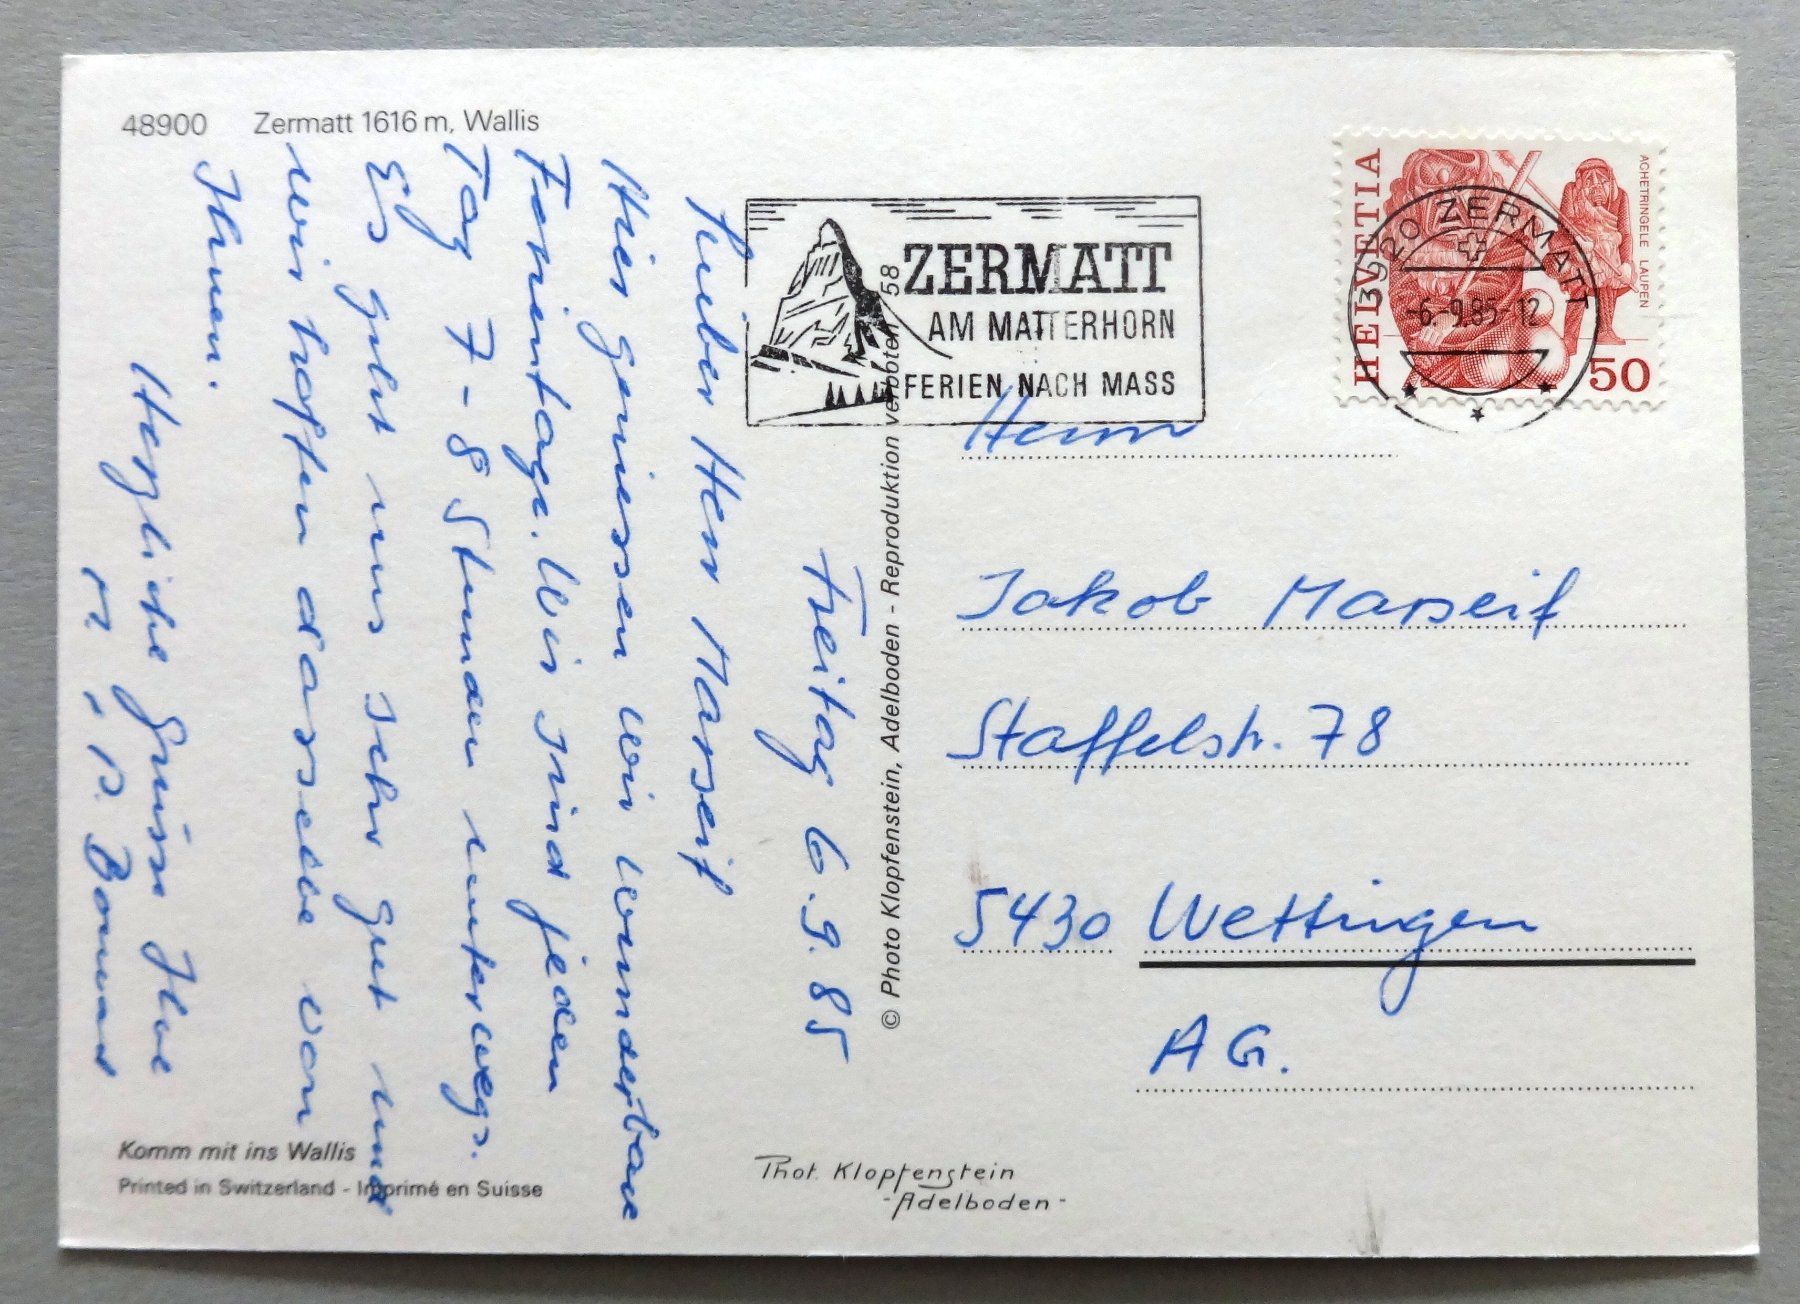 48900 Zermatt 1616 m, Wallis
Freitag 6.9.85
Lieber Herr Marseif
Hier geniessen wir wunderbare
Ferientage. Wir sind jeden
Tag 7-8 Stunden unterwegs.
Es geht uns sehr gut und
wir hoffen dasselbe von
Ihnen.
Herzliche Grüsse Ihre
Komm mit ins Wallis
Printed in Switzerland - Imprimé en Suisse
© Photo Klopfenstein, Adelboden - Reproduktion verboten 58
ZERMATT
AM MATTERHORN
FERIEN NACH MASS
3920 ZERMATT
-6.-9.85-12
HELVETIA
ACHETRINGELE LAUPEN
50
Herrn
Jakob Marseif
Staffelstr. 78
5430 Wettingen
AG.
Phot. Klopfenstein
-Adelboden-